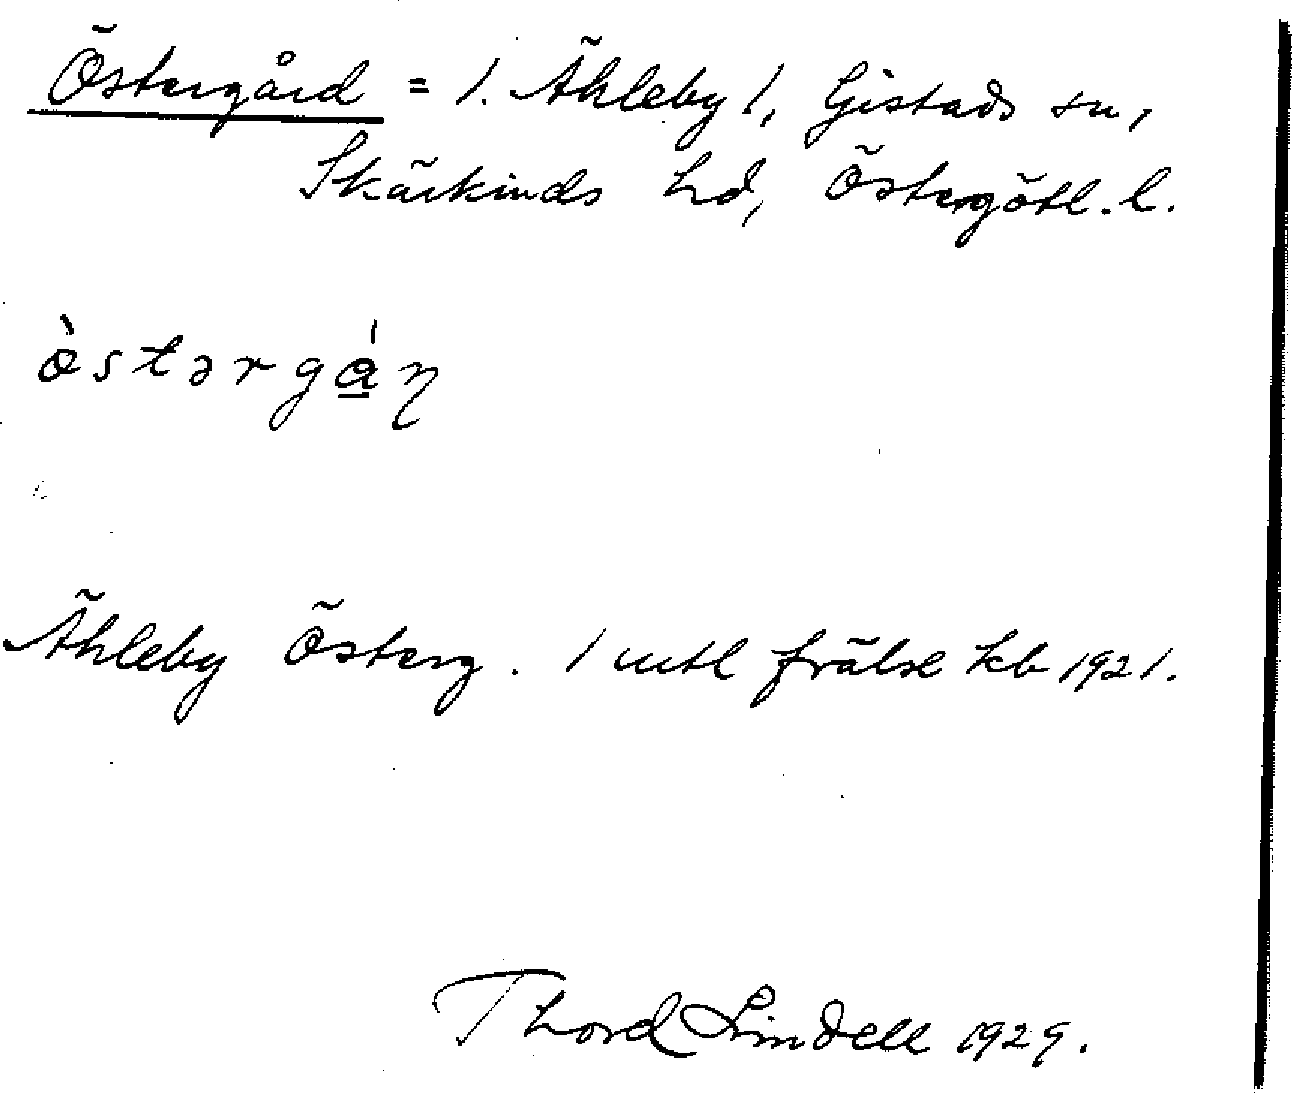 Östergård = 1. Ähleby 1, Gistads sn,
Skärkinds hd, Östergötl. l.
ö̀stərgá̱ŋ
Ähleby Österg. 1 mtl frälse kb 1921.
Thord Lindell 1929.